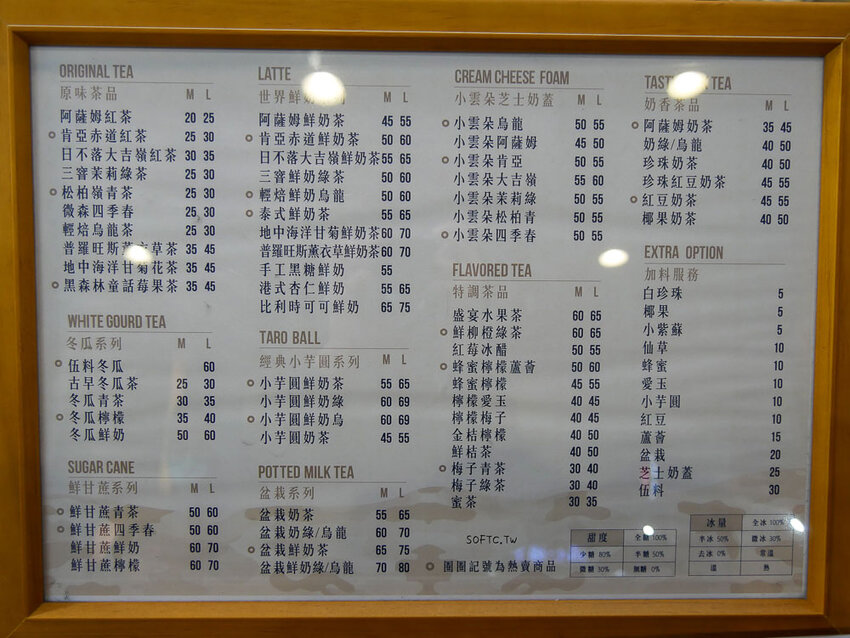 ORIGINAL TEA
原味茶品 M L
阿薩姆紅茶 20 25
肯亞赤道紅茶 25 30
日不落大吉嶺紅茶 30 35
三窨茉莉綠茶 25 30
松柏嶺青茶 25 30
微森四季春 25 30
輕焙烏龍茶 25 30
普羅旺斯薰衣草茶 35 45
地中海洋甘菊花茶 35 45
黑森林童話莓果茶 35 45
WHITE GOURD TEA
冬瓜系列 M L
伍料冬瓜 60
古早冬瓜茶 25 30
冬瓜青茶 30 35
冬瓜檸檬 35 40
冬瓜鮮奶 50 60
SUGAR CANE
鮮甘蔗系列 M L
鮮甘蔗青茶 50 60
鮮甘蔗四季春 50 60
鮮甘蔗鮮奶 60 70
鮮甘蔗檸檬 60 70
LATTE
世界鮮奶系列 M L
阿薩姆鮮奶茶 45 55
肯亞赤道鮮奶茶 50 60
日不落大吉嶺鮮奶茶 55 65
三窨鮮奶綠茶 50 60
輕焙鮮奶烏龍 50 60
泰式鮮奶茶 55 65
地中海洋甘菊鮮奶茶 60 70
普羅旺斯薰衣草鮮奶茶 60 70
手工黑糖鮮奶 55
港式杏仁鮮奶 55 65
比利時可可鮮奶 65 75
TARO BALL
經典小芋圓系列 M L
小芋圓鮮奶茶 55 65
小芋圓鮮奶綠 60 69
小芋圓鮮奶烏 60 69
小芋圓奶茶 45 55
POTTED MILK TEA
盆栽系列 M L
盆栽奶茶 55 65
盆栽奶綠/烏龍 60 70
盆栽鮮奶茶 65 75
盆栽鮮奶綠/烏龍 70 80
CREAM CHEESE FOAM
小雲朵芝士奶蓋 M L
小雲朵烏龍 50 55
小雲朵阿薩姆 45 50
小雲朵肯亞 50 55
小雲朵大吉嶺 55 60
小雲朵茉莉綠 50 55
小雲朵松柏青 50 55
小雲朵四季春 50 55
FLAVORED TEA
特調茶品 M L
盛宴水果茶 60 65
鮮柳橙綠茶 60 65
紅莓冰醋 50 55
蜂蜜檸檬蘆薈 50 60
蜂蜜檸檬 45 55
檸檬愛玉 40 45
檸檬梅子 40 45
金桔檸檬 40 50
鮮桔茶 40 50
梅子青茶 30 40
梅子綠茶 30 40
蜜茶 30 35
SOFTC.TW
圈圈記號為熱賣商品
TEA
奶香茶品 M L
阿薩姆奶茶 35 45
奶綠/烏龍 40 50
珍珠奶茶 40 50
珍珠紅豆奶茶 45 55
紅豆奶茶 45 55
椰果奶茶 40 50
EXTRA OPTION
加料服務
白珍珠 5
椰果 5
小紫蘇 5
仙草 10
蜂蜜 10
愛玉 10
小芋圓 10
紅豆 10
蘆薈 15
盆栽 20
芝士奶蓋 25
伍料 30
甜度 全糖 100%
少糖 80% 半糖 50%
微糖 30% 無糖 0%
冰量 全冰 100%
半冰 50% 微冰 30%
去冰 0% 常溫
溫 熱